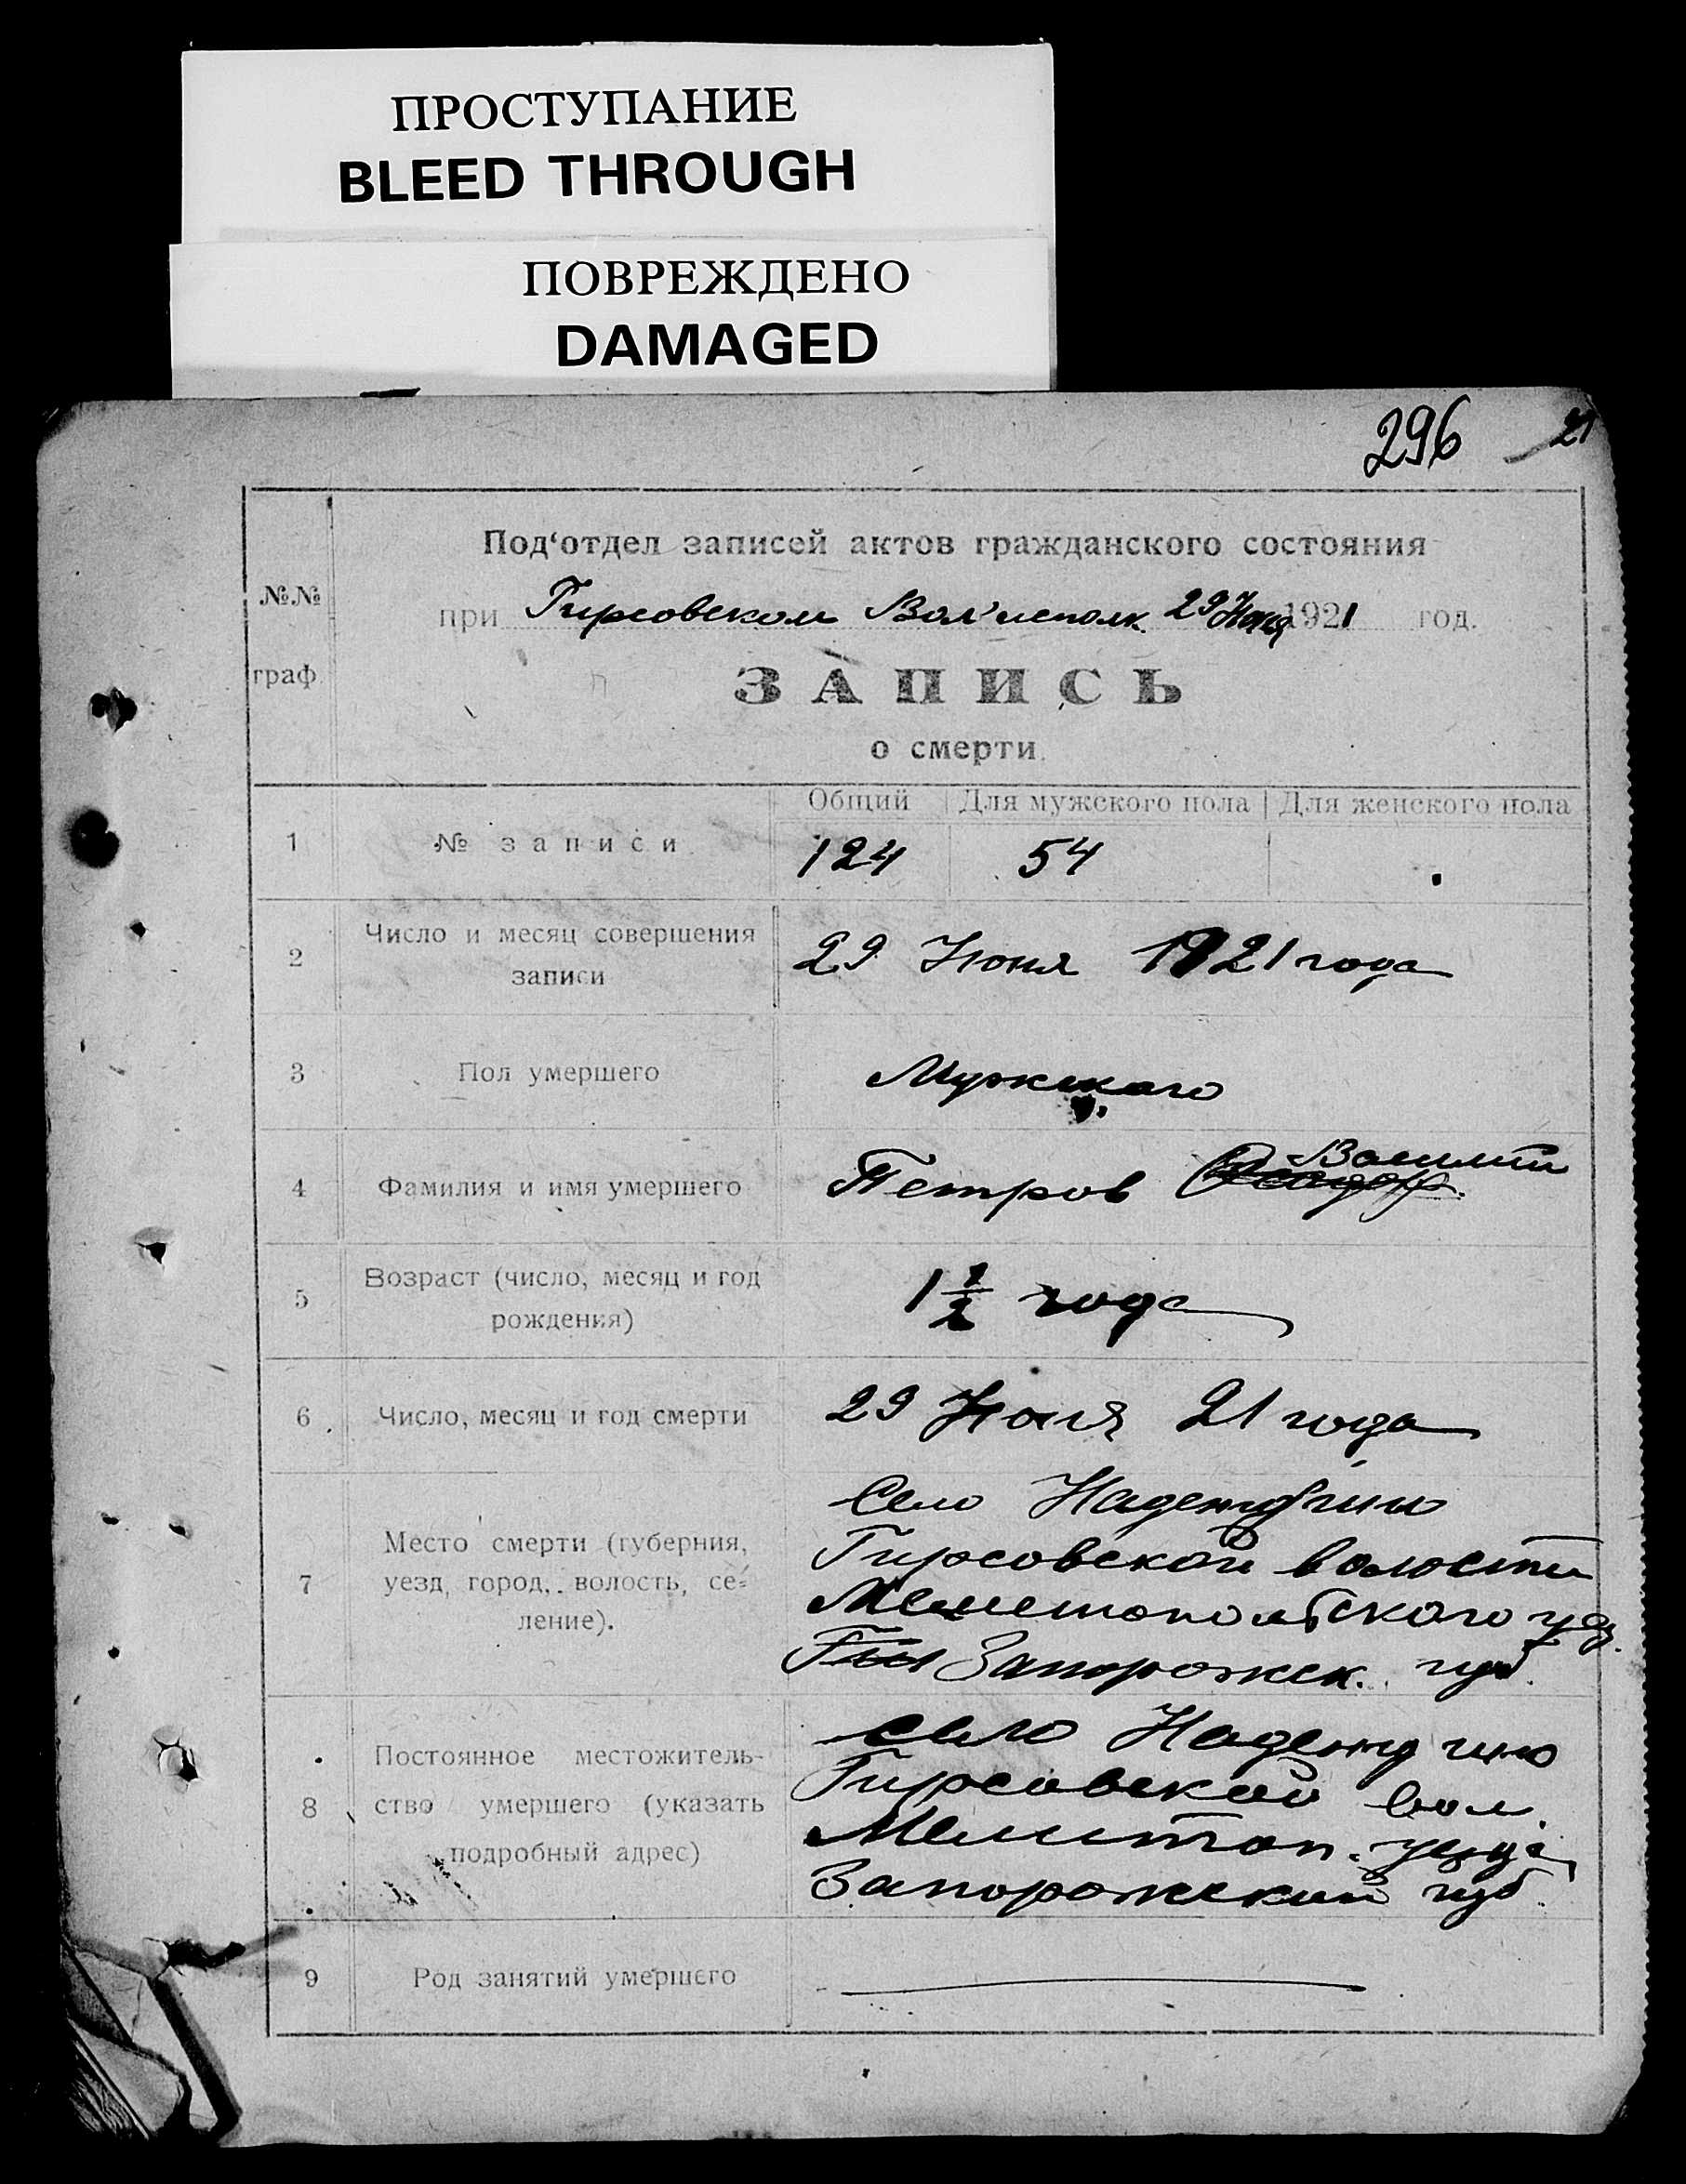 ПРОСТУПАНИЕ
BLEED THROUGH
ПОВРЕЖДЕНО
DAMAGED
296 21
№№ граф.
Под‘отдел записей актов гражданского состояния
при Гирсовском Вол'исполк. 29 Июня 1921 год.
ЗАПИСЬ
о смерти.
Общий Для мужского пола Для женского пола
1 № записи. 124 54
2 Число и месяц совершения 29 Июня 1921 года
записи
3 Пол умершего Мужского
4 Фамилия и имя умершего Петров Василий
5 Возраст (число, месяц и год 1 1/2 года
рождения)
6 Число, месяц и год смерти 29 Июня 21 года
Село Надеждино
7 Место смерти (губерния, Гирсовской волости
уезд, город, волость, се- Мелитопольского уез.
ление). Запорожск. губ.
село Надеждино
8 Постоянное местожитель- Гирсовской вол.
ство умершего (указать Мелитоп. уезда
подробный адрес) Запорожской губ.
9 Род занятий умершего